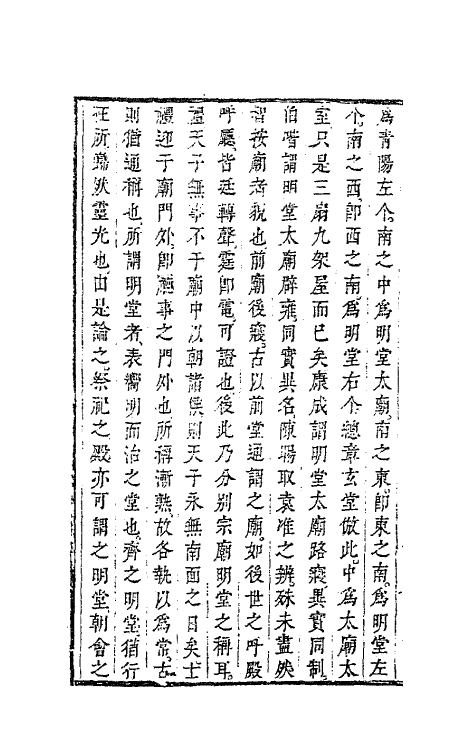 爲青陽左个南之中爲明堂太廟南之東卽東之南爲明堂左
个南之西卽西之南爲明堂右个總章玄堂倣此中爲太廟太
室只是三扇九架屋而已矣康成謂明堂太廟路寢異實同制
伯喈謂明堂太廟辟雍同實異名陳暘取袁准之辨殊未盡矣
智按廟者貌也前廟後寢古以前堂通謂之廟如後世之呼殿
呼廳皆廷轉聲霆卽電可證也後此乃分別宗廟明堂之稱耳
禮天子無事不于廟中以朝諸侯則天子永無南面之日矣士
禮迎于廟門外卽聽事之門外也所稱漸熟故各執以爲常古
則猶通稱也所謂明堂者表嚮明而治之堂也齊之明堂猶行
在所巋然靈光也由是論之祭祀之殿亦可謂之明堂朝會之